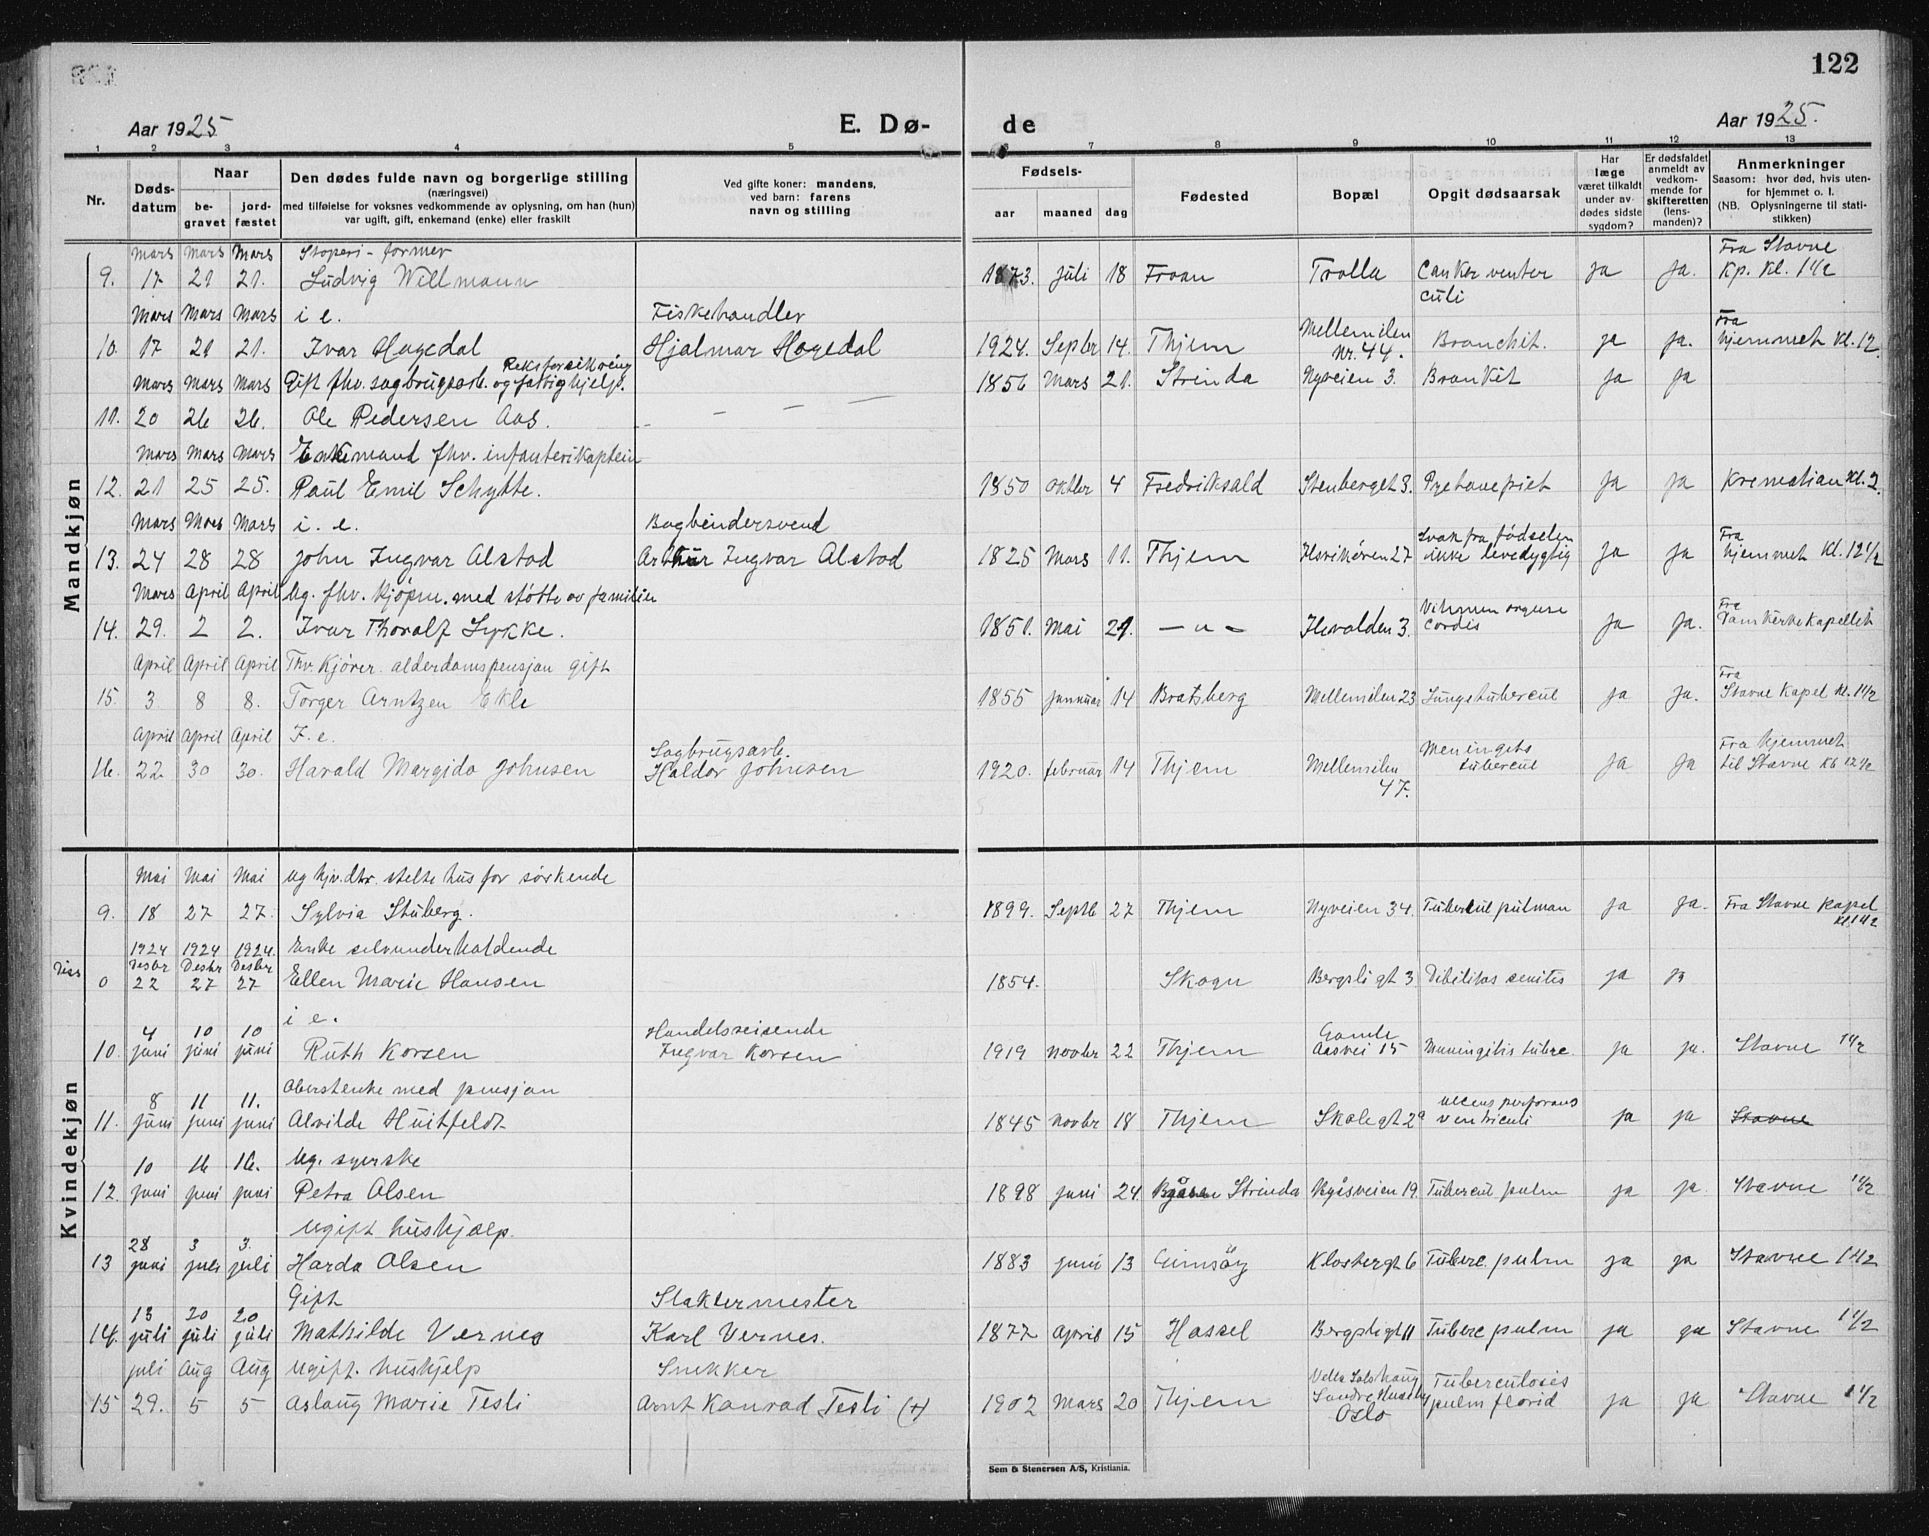 122
Aar 1925
E. Dø-
de
Aar 1925.
1 2 3 4 5 6 7 8 9 10 11 12 13
Nr.
Døds-
datum
Naar
be-
gravet
jord-
fæstet
Den dødes fulde navn og borgerlige stilling
(næringsvei)
med tilføielse for voksnes vedkommende av oplysning, om han (hun)
var ugift, gift, enkemand (enke) eller fraskilt
Ved gifte koner: mandens,
ved barn: farens
navn og stilling
Fødsels-
aar maaned dag
Fødested
Bopæl
Opgit dødsaarsak
Har
læge
været tilkaldt
under av-
dødes sidste
sygdom?
Er dødsfaldet
anmeldt av
vedkom-
mende for
skifteretten
(lens-
manden)?
Anmerkninger
Saasom: hvor død, hvis uten-
for hjemmet o. l.
(NB. Oplysningerne til stati-
stikken)
Mandkjøn
mars mars mars Støperi-former Fra Stavne
9. 17 21 21. Ludvig Wellmann 1873. juli 18 Froan Trolla Canker ventri ja ja. Kp. Kl. 1 1/2
culi
Mars Mars Mars i e. Fiskehandler Mellemilen Fra
10. 17 21 21. Ivar Hagedal Hjalmar Hagedal 1924. Septbr 14. Thjem Nr. 44. Bronchit. ja ja. hjemmet Kl. 12.
Mars Mars Mars Gift fhv. sagbrugsarb. og fattighjelp. 1856 Mars 21. Strinda Nyveien 3. Bronkit ja ja
11. 20 26 26. Ole Pedersen Aas. - - -
Mars Mars Mars Enkemand fhv. infanterikaptein
12. 21 25 25. Paul Emil Schytte. 1850 oktbr 4 Fredriksald Stenberget 3. ja ja Kremation Kl. 2.
Mars Mars Mars i. e. Bogbindersvend Svak fra fødselen Fra
13. 24 28 28 John Ingvar Alstad Arthur Ingvar Alstad 1825 Mars 11. Thjem Ilsvikøren 27 ikke levedygtig ja ja hjemmet Kl. 12 1/2
Mars April April Ug. fhv. kjøpm. med støtte av familien
14. 29. 2 2. Ivar Thoralf Lykke. 1851. Mai 21. — " — Ilevolden 3. Cordis ja ja. Fra Domkirkekapellet
April April April Fhv. Kjører. alderdomspensjon gift Fra
15. 3 8 8. Torger Arntzen Ekle 1855 januar 14 Bratsberg Mellemilen 23 Lungetubercul ja ja. Stavne Kapel Kl. 1 1/2
April April April I. e. Sagbrugsarb. Meningets Fra hjemmet
16. 22 30 30. Harald Margido Johnsen Haldor Johnsen 1920. februar 14 Thjem Mellemilen tubercul ja ja til Stavne Kl 12 1/2
47.
Kvindekjøn
Mai Mai Mai ug hjv. dtr. stelte hus for søskende
9. 18 27 27. Sylvia Stuberg. 1899. Septb 27 Thjem Nyveien 34. Tubercul pulmon ja ja. Fra Stavne Kapel
Kl 1 1/2
1924 1924 1924. Enke selvunderholdende
Desbr Desbr Desbr
0 22 27 27 Ellen Marie Hansen 1854. Skogn Bergsligt 3. Dibilitas senilis ja ja
i e.
4 10 10 Handelsreisende Gamle
10. juni juni juni Ruth Korsen Ingvar Korsen 1919 novbr 22 Thjem Aasvei 15 Meningitis tuberc. ja ja. Stavne 1 1/2
Oberstenke med pensjon
8 11 11. ulcens perforans
11. juni juni juni Alvilde Huitfeldt 1845 novbr 18 Thjem Skolegt 2a ventriculi ja ja Stavne
10 16 16. Ug. syerske
12. juni juni juni Petra Olsen 1898 juni 24. Byåsen Strinda Byåsveien 19. Tubercul pulm ja ja. Stavne 1 1/2
Ugift hushjælp.
28 3 3.
13 juni juli juli Harda Olsen 1883 juni 13 Gimsöy Klostergt 6 Tuberc. pulm ja ja Stavne 1 1/2
Gift Slaktermester
13 20 20
14. juli juli juli Mathilde Vernes Karl Vernes. 1877 April 15 Hassel Bergsligt 11 Tuberc pulm ja ja Stavne 1 1/2
juli Aug Aug Ugift. hushjelp Snekker Tuberculosis
15 29. 5 5 Aslaug Marie Tesli Arnt Konrad Tesli (+) 1902 Mars 20 Thjem Oslo pulm florid ja ja Stavne 1 1/2
Sem & Stenersen A/S, Kristiania.